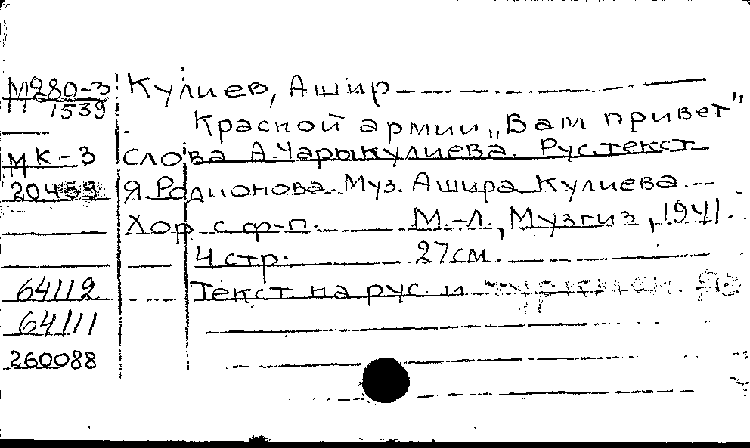 М280-3 Кулиев, Ашир
1539
Красной армии „Вам привет"
МК-3 слова А.Чарыкулиева. Рус.текст
Я.Родионова. Муз. Ашира Кулиева
Хор с ф-п. М.-Л., Музгиз, 1941.
4 стр. 27см.
64112 Текст на рус. и туркмен. яз
64111
260088